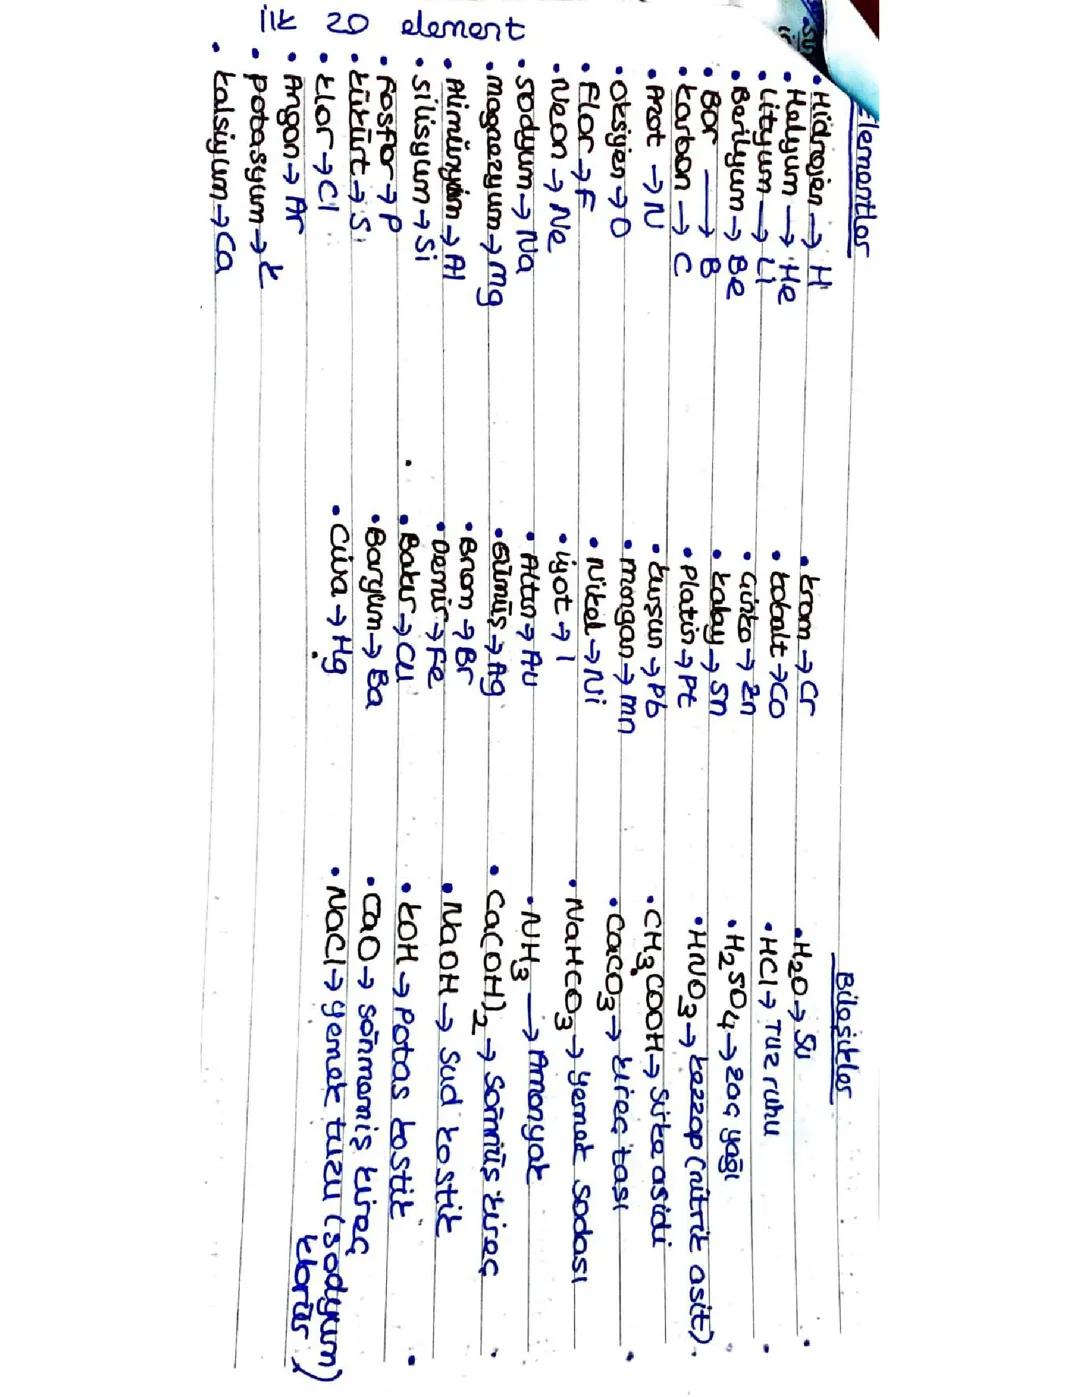 ilk 20 element
Elementler
• Hidrojen → H
• Helyum → He
• Lityum → Li
• Berilyum → Be
• Bor → B
• Karbon → C
• Azot → N
• Oksijen → O
• Flor → F
• Neon → Ne
• Sodyum → Na
• Magnezyum → Mg
• Aliminyum → Al
• Silisyum → Si
• Fosfor → P
• Kükürt → S
• Klor → Cl
• Argon → Ar
• Potasyum → K
• Kalsiyum → Ca
• Krom → Cr
• Kobalt → Co
• Çinko → Zn
• Kalay → Sn
• Platin → Pt
• Kurşun → Pb
• Mangan → Mn
• Nikel → Ni
• İyot → I
• Altın → Au
• Gümüş → Ag
• Brom → Br
• Demir → Fe
• Bakır → Cu
• Baryum → Ba
• Civa → Hg
Bileşikler
• H₂O → Su
• HCl → Tuz ruhu
• H₂SO₄ → Zaç yağı
• HNO₃ → Kezzap (nitrik asit)
• CH₃COOH → Sirke asidi
• CaCO₃ → Kireç taşı
• NaHCO₃ → Yemek sodası
• NH₃ → Amonyak
• Ca(OH)₂ → Sönmüş kireç
• NaOH → Sud kostik
• KOH → Potas kostik
• CaO → sönmemiş kireç
• NaCl → yemek tuzu (sodyum
klorür)